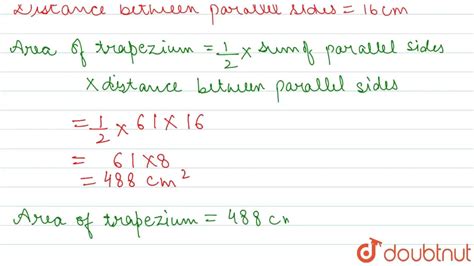 Distance between parallel sides = 16 cm
Area of trapezium = 1/2 × sum of parallel sides
× distance between parallel sides
= 1/2 × 61 × 16
= 61 × 8
= 488 cm²
Area of trapezium = 488 c
doubtnut